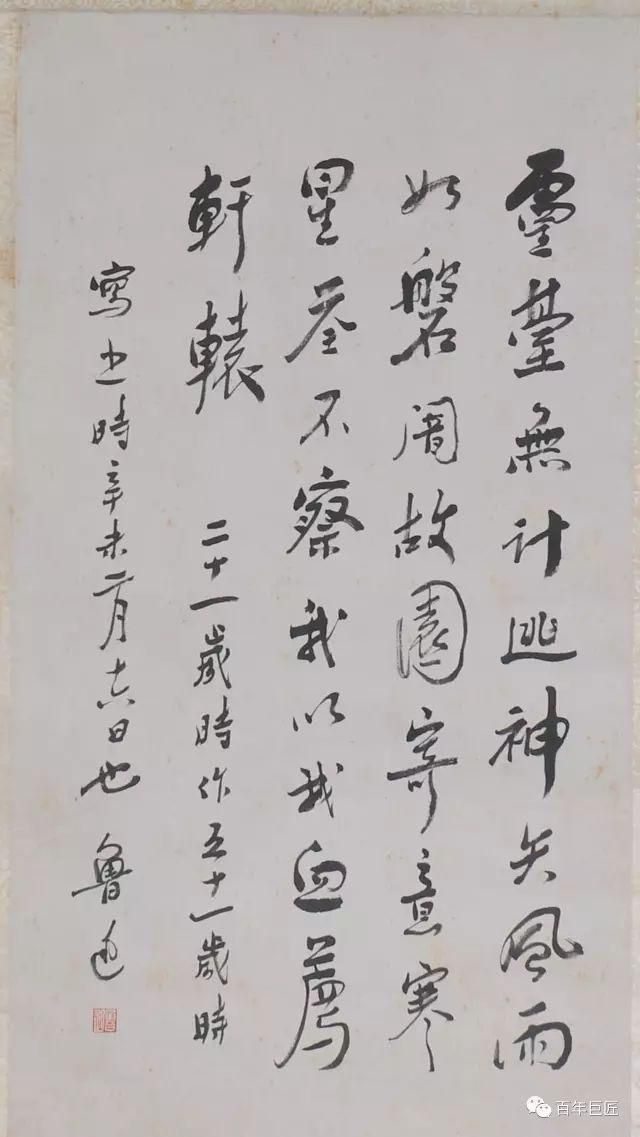 靈臺無計逃神矢風雨
如磐闇故園寄意寒
星荃不察我以我血薦
軒轅
二十一歲時作五十一歲時
寫之時辛未二月十六日也 魯迅
百年巨匠